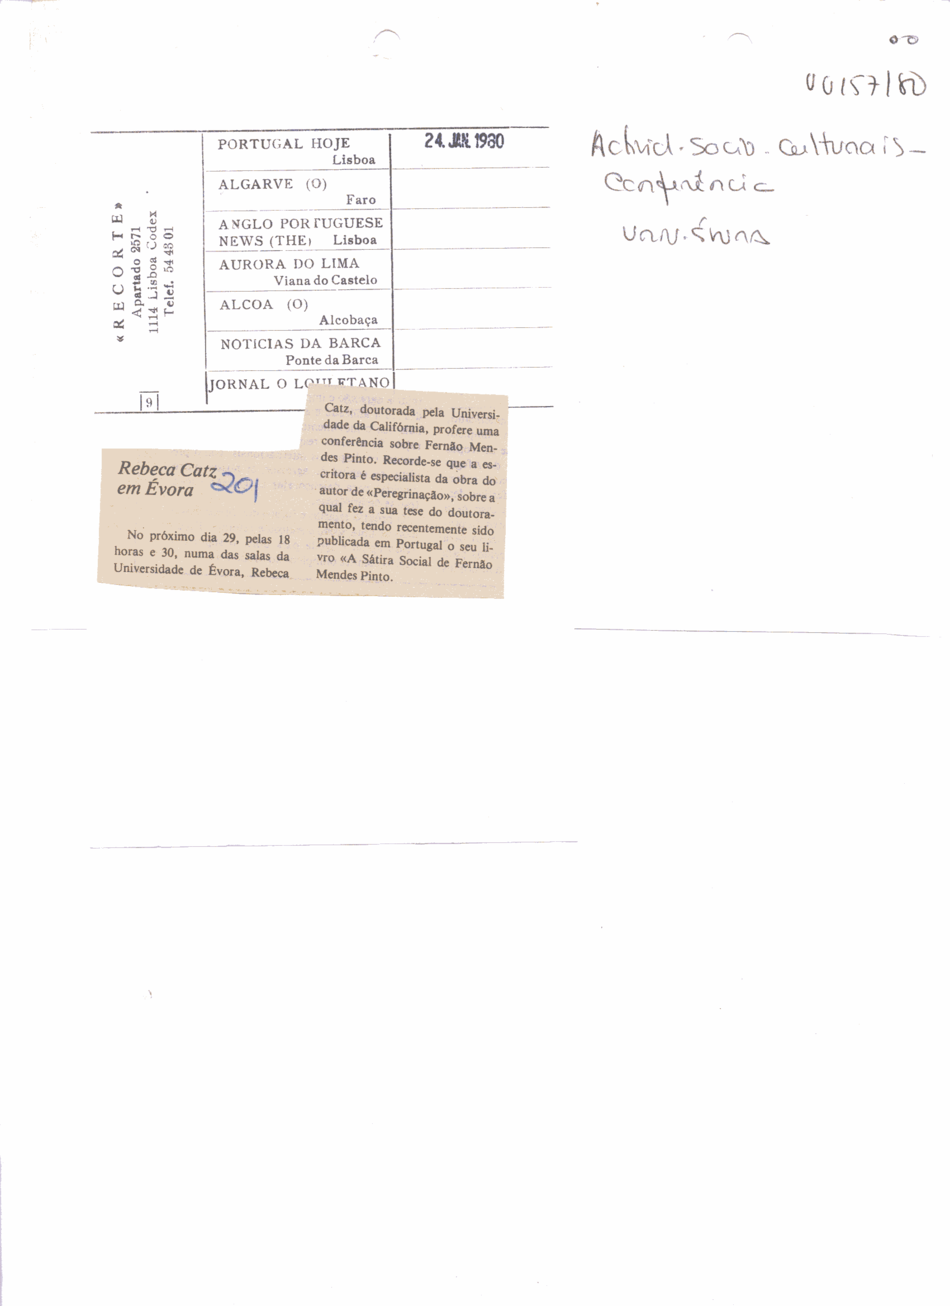 00157/80
Activid. Socio-Culturais -
Conferência
Univ. Évora
«RECORTE»
Apartado 2571
1114 Lisboa Codex
Telef. 54 43 01
9
PORTUGAL HOJE
Lisboa
24. JAN. 1980
ALGARVE (O)
Faro
ANGLO PORTUGUESE
NEWS (THE) Lisboa
AURORA DO LIMA
Viana do Castelo
ALCOA (O)
Alcobaça
NOTICIAS DA BARCA
Ponte da Barca
JORNAL O LOULETANO
Rebeca Catz
em Évora
201
No próximo dia 29, pelas 18
horas e 30, numa das salas da
Universidade de Évora, Rebeca
Catz, doutorada pela Universi-
dade da Califórnia, profere uma
conferência sobre Fernão Men-
des Pinto. Recorde-se que a es-
critora é especialista da obra do
autor de «Peregrinação», sobre a
qual fez a sua tese do doutora-
mento, tendo recentemente sido
publicada em Portugal o seu li-
vro «A Sátira Social de Fernão
Mendes Pinto.